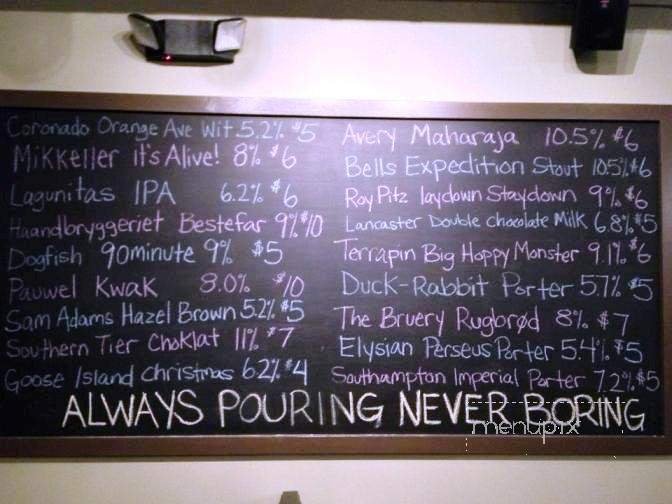 Coronado Orange Ave Wit 5.2% $5
Mikkeller it's Alive! 8% $6
Lagunitas IPA 6.2% $6
Haandbryggeriet Bestefar 9% $10
Dogfish 90minute 9% $5
Pauwel Kwak 8.0% $10
Sam Adams Hazel Brown 5.2% $5
Southern Tier Choklat 11% $7
Goose Island Christmas 6.2% $4
Avery Maharaja 10.5% $6
Bells Expedition Stout 10.5% $6
Roy Pitz laydown Staydown 9% $6
Lancaster Double chocolate Milk 6.8% $5
Terrapin Big Hoppy Monster 9.1% $6
Duck-Rabbit Porter 5.7% $5
The Bruery Rugbrød 8% $7
Elysian Perseus Porter 5.4% $5
Southampton Imperial Porter 7.2% $5
ALWAYS POURING NEVER BORING
menupix